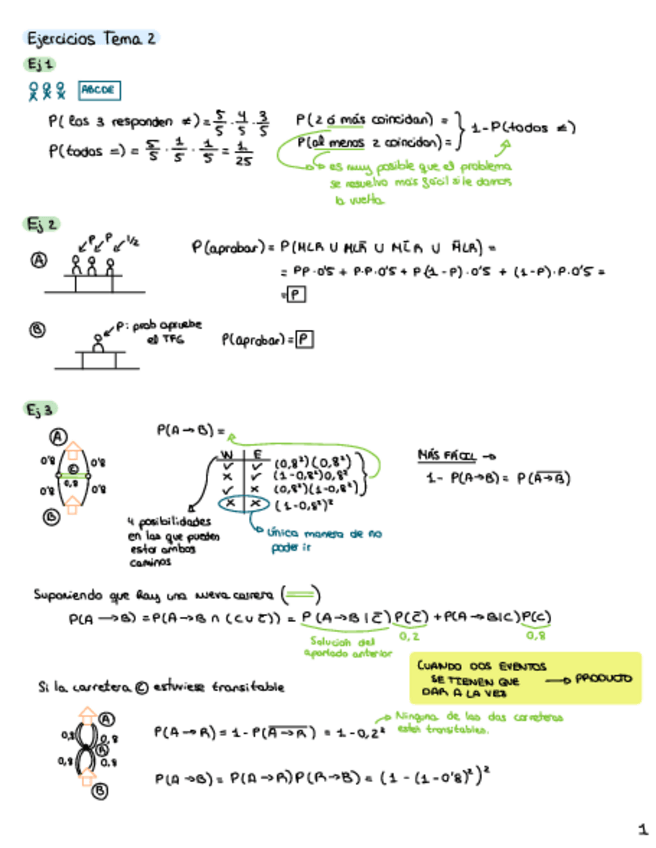 Ejercicios Tema 2
Ej 1
ABCDE
P( los 3 responden ≠) = 5/5 · 4/5 · 3/5
P(todos =) = 5/5 · 1/5 · 1/5 = 1/25
P(2 ó más coincidan) =
P(al menos 2 coincidan) =
} 1-P(todos ≠)
es muy posible que el problema
se resuelva más fácil si le damos
la vuelta.
Ej 2
A
P P 1/2
P(aprobar) = P(MLR ∪ MLR̄ ∪ ML̄R ∪ M̄LR) =
= PP·0'5 + P·P·0'5 + P(1-P)·0'5 + (1-P)·P·0'5 =
= P
B
P: prob apruebe
el TFG
P(aprobar) = P
Ej 3
A
0'8 C 0'8
0,8
0'8 0'8
B
P(A→B) =
W E
✓ ✓ (0,8²)(0,8²)
x ✓ (1-0,8²)0,8²
✓ x (0,8²)(1-0,8²)
x x (1-0,8²)²
4 posibilidades
en las que pueden
estar ambos
caminos
única manera de no
poder ir
MÁS FÁCIL →
1- P(A→B) = P(A̅→̅B̅)
Suponiendo que hay una nueva carrera (═)
P(A→B) = P(A→B ∩ (C∪C̄)) = P(A→B|C̄)P(C̄) + P(A→B|C)P(C)
Solución del
apartado anterior
0,2
0,8
CUANDO DOS EVENTOS
SE TIENEN QUE
DAR A LA VEZ
→ PRODUCTO
Si la carretera C estuviese transitable
A
0,8 0,8
R
0,8 0,8
B
P(A→R) = 1-P(A̅→̅R̅) = 1-0,2²
Ninguna de las dos carreteras
estén transitables.
P(A→B) = P(A→R)P(R→B) = (1-(1-0'8)²)²
1